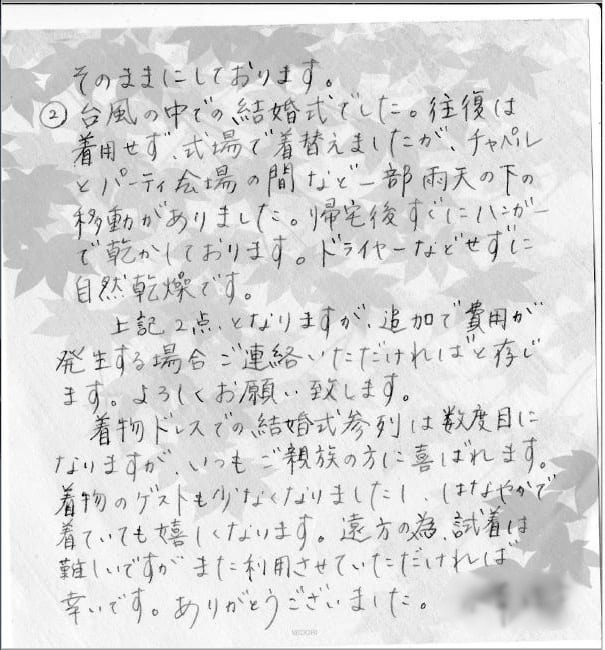 そのままにしております。
② 台風の中での結婚式でした。往復は
着用せず、式場で着替えましたが、チャペル
とパーティ会場の間など一部雨天の下の
移動がありました。帰宅後すぐにハンガー
で乾かしております。ドライヤーなどせずに
自然乾燥です。
上記2点となりますが、追加で費用が
発生する場合ご連絡いただければと存じ
ます。よろしくお願い致します。
着物ドレスでの結婚式参列は数度目に
なりますが、いつもご親族の方に喜ばれます。
着物のゲストも少なくなりましたし、はなやかで
着ていても嬉しくなります。遠方の為、試着は
難しいですがまた利用させていただければ
幸いです。ありがとうございました。
MIDORI